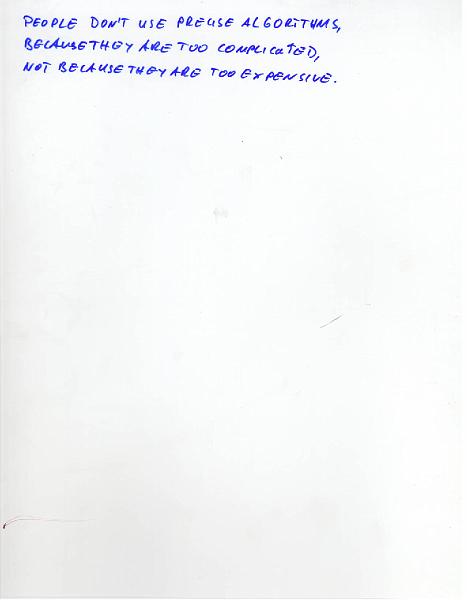 PEOPLE DON'T USE PRECISE ALGORITHMS,
BECAUSE THEY ARE TOO COMPLICATED,
NOT BECAUSE THEY ARE TOO EXPENSIVE.